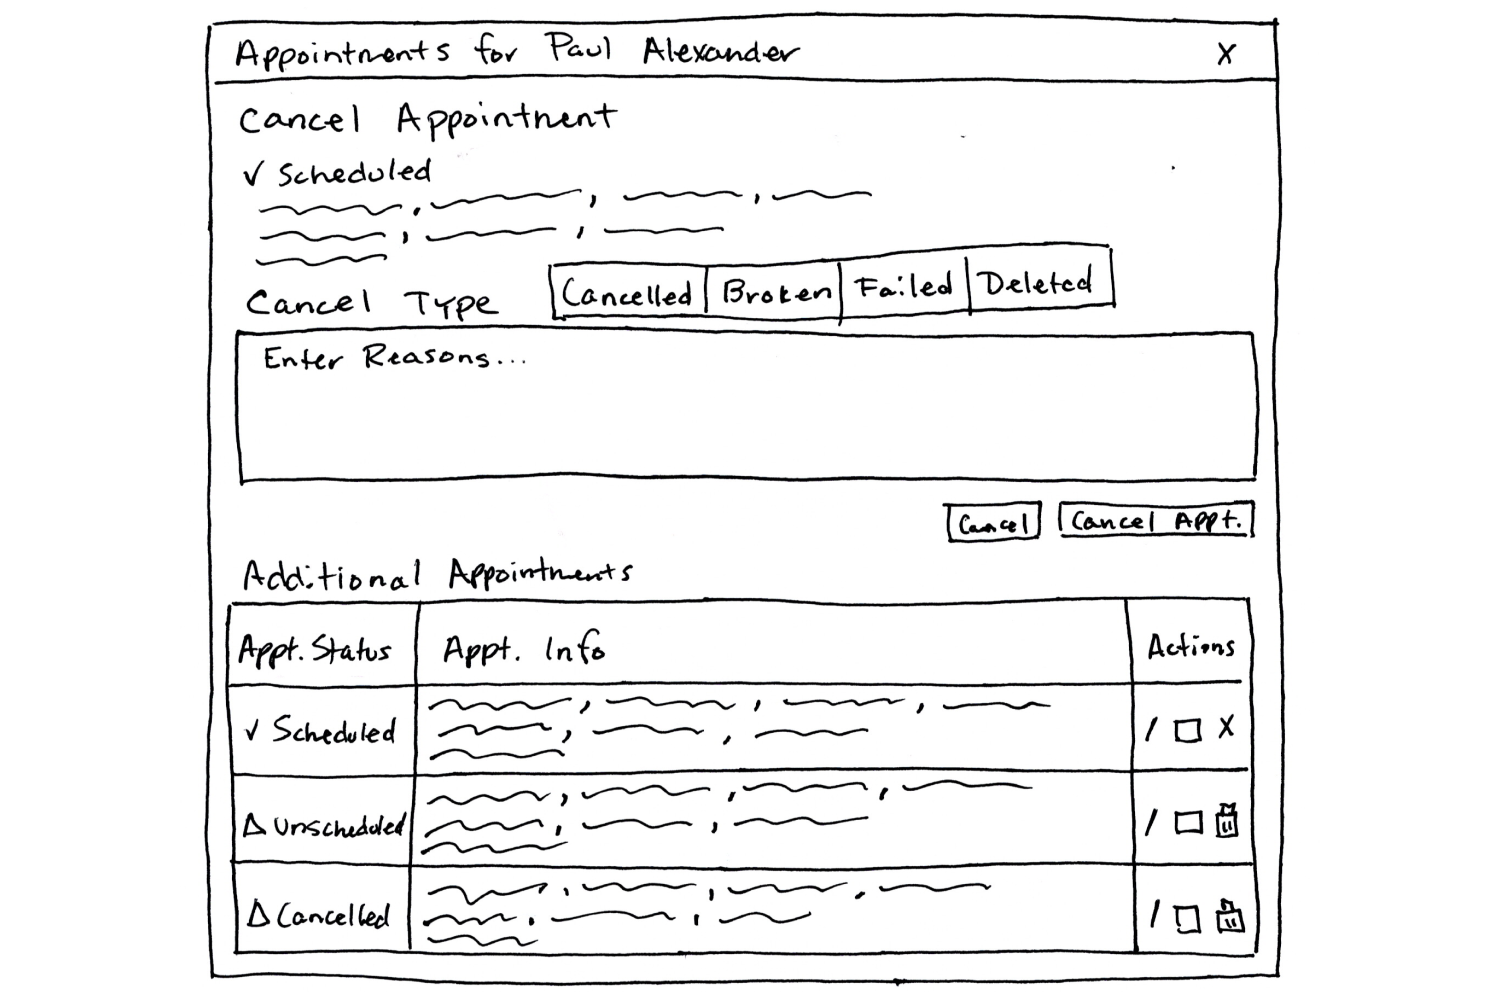 Appointments for Paul Alexander X
Cancel Appointment
✓ Scheduled
Cancel Type Cancelled Broken Failed Deleted
Enter Reasons...
Cancel Cancel Appt.
Additional Appointments
Appt. Status Appt. Info Actions
✓ Scheduled / X
Δ Unscheduled /
Δ Cancelled /